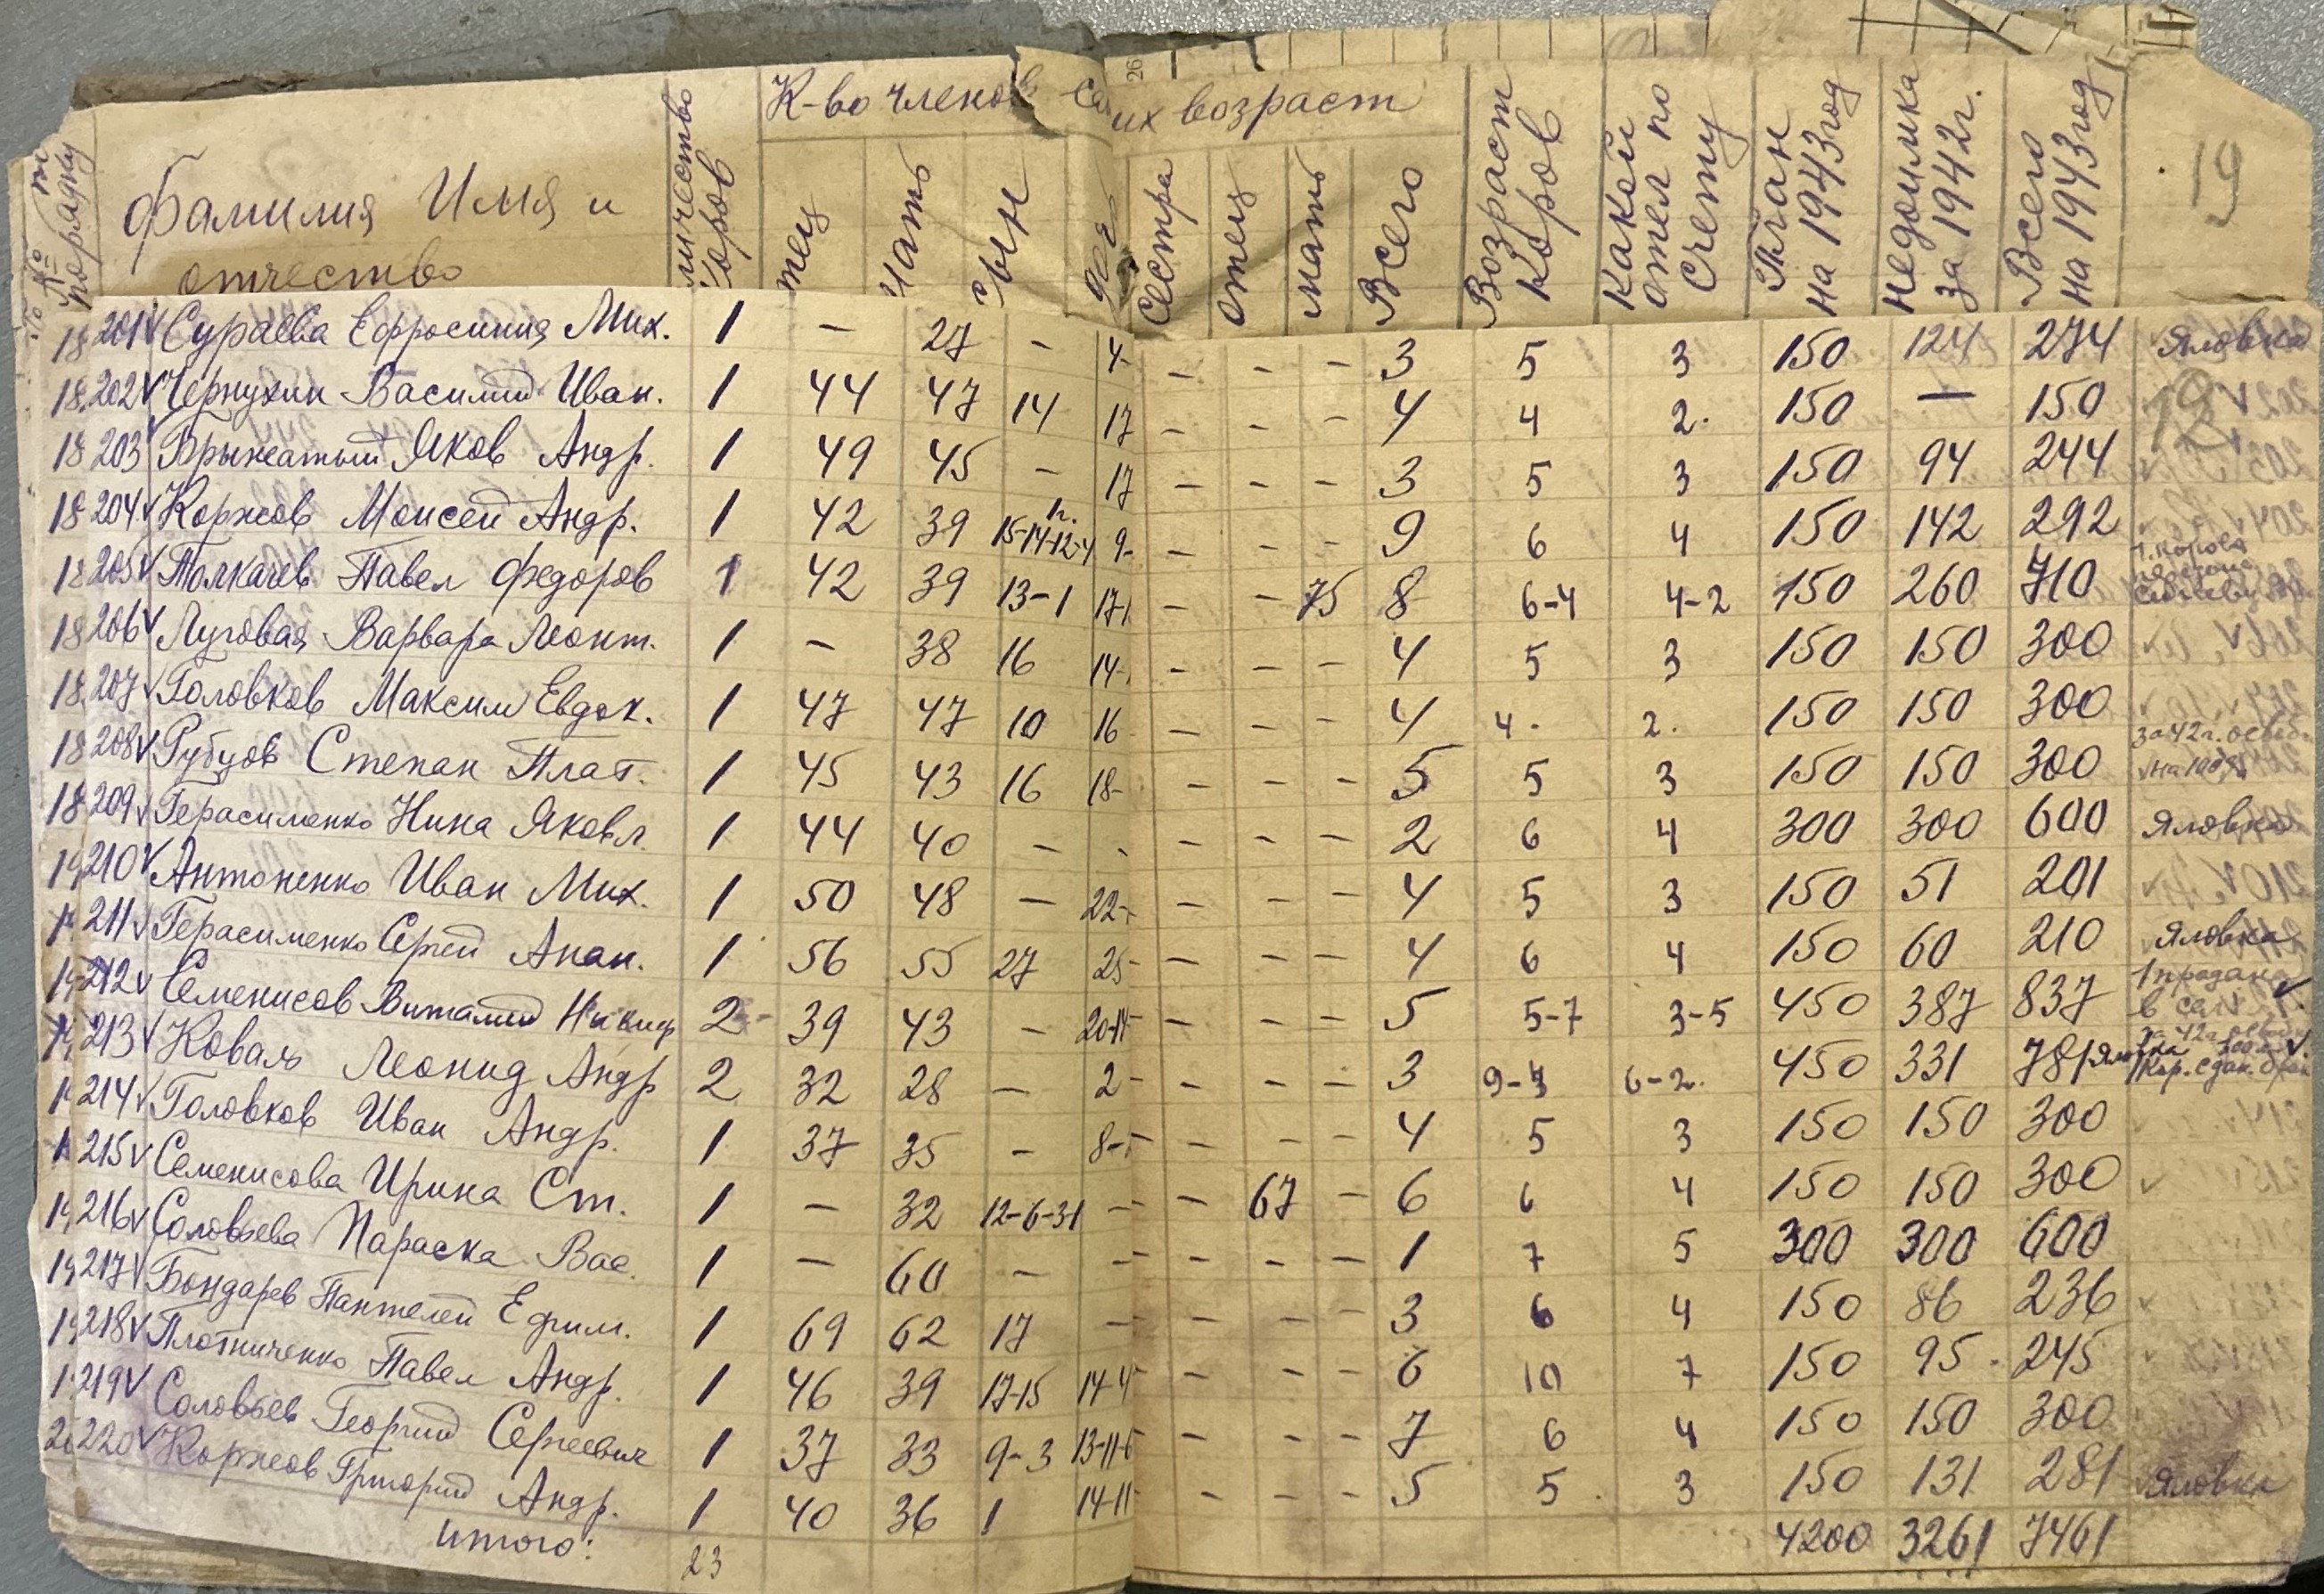 № по порядку
Фамилия Имя и
отчество
личество
коров
К-во членов
их возраст
Мать
Сын
Сестра
отец
мать
Всего
Возраст
коров
Какой
отел по
счету
План
на 1943 год
недоимка
за 1942 г.
Всего
на 1943 год
19
26
201 √ Сураева Ефросиния Мих. 1 – 27 – 4- – – – 3 5 3 150 124 274 Яловка
202 √ Чернухин Василий Иван. 1 44 47 14 17 – – – 4 4 2. 150 — 150
203 Брыжатый Яков Андр. 1 49 45 – 17 – – – 3 5 3 150 94 244
204 √ Коржов Моисей Андр. 1 42 39 15-14-12-4 1г. 9- – – – 9 6 4 150 142 292
205 √ Толкачев Павел Федоров 1 42 39 13-1 17-1 – – 75 8 6-4 4-2 150 260 710
206 √ Луговая Варвара Леонт. 1 – 38 16 14- – – – 4 5 3 150 150 300
207 √ Головков Максим Евдок. 1 47 47 10 16 – – – 4 4. 2. 150 150 300
208 √ Рубцов Степан Плат. 1 45 43 16 18- – – – 5 5 3 150 150 300 за 42г. освоб.
209 √ Герасименко Нина Яковл. 1 44 40 – - – – – 2 6 4 300 300 600 Яловка
210 √ Антоненко Иван Мих. 1 50 48 – 22- – – – 4 5 3 150 51 201
211 √ Герасименко Сергей Анан. 1 56 55 27 25- – – – 4 6 4 150 60 210 Яловка
212 √ Семенисов Виталий Никиф 2 39 43 – 20-14 – – – 5 5-7 3-5 450 387 837 1 продана
213 √ Коваль Леонид Андр 2 32 28 — 2- – – – 3 9-4 6-2. 450 331 781 Яловка
214 √ Головков Иван Андр. 1 37 35 – 8- – – – 4 5 3 150 150 300
215 √ Семенисова Ирина Ст. 1 – 32 12-6-3-1 — – 67 – 6 6 4 150 150 300
216 √ Соловьева Параска Вас. 1 – 60 – – – – – 1 7 5 300 300 600
217 √ Бондарев Пантелей Ефим. 1 69 62 17 — – – – 3 6 4 150 86 236
218 √ Плотниченко Павел Андр. 1 46 39 17-15 14-4 – – – 6 10 7 150 95 245
219 √ Соловьев Георгий Сергеевич 1 37 33 9-3 13-11-6 – – – 7 6 4 150 150 300
220 √ Коржов Григорий Андр. 1 40 36 1 14-11 – – – 5 5 3 150 131 281 Яловка
итого: 23 4200 3261 7461